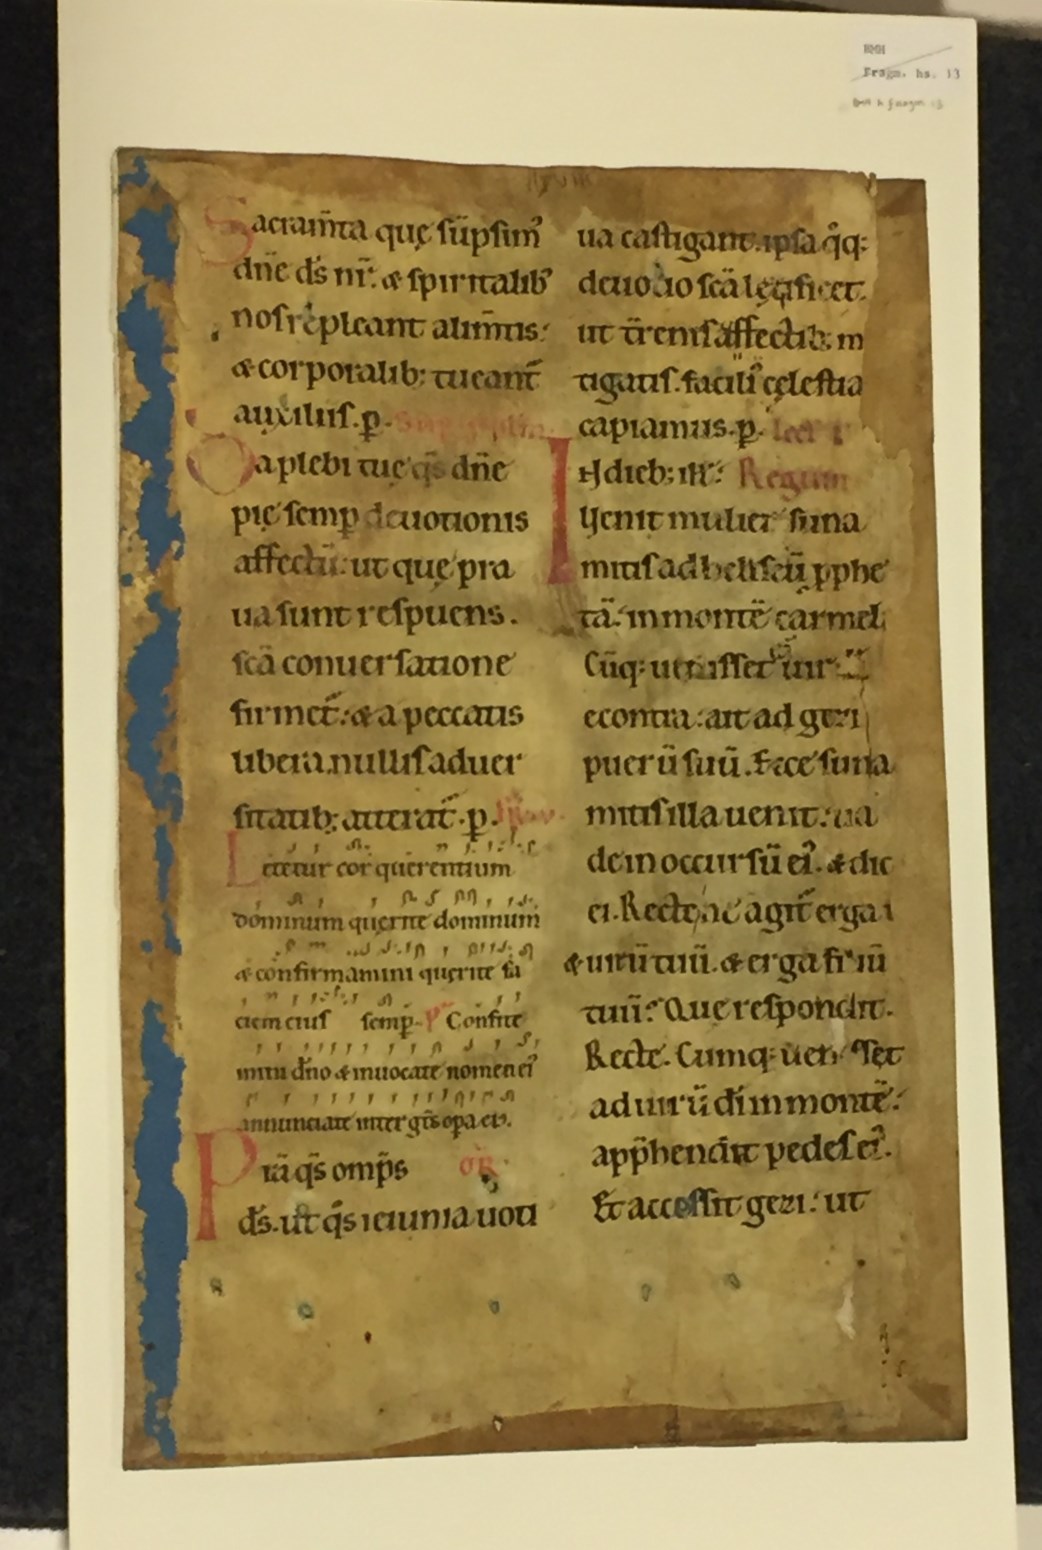 Fragm. hs. 13
Sacram̄ta quę sūpsim᷒
dn̄e ds̄ nr̄: & spiritalib᷒
nos repleant alim̄tis:
& corporalib; tueant᷑
auxiliis. p̱.
Da plebi tuę q̄s dn̄e
pię semp̱ deuotionis
affectū: ut quę pra
ua sunt respuens.
scā conuersatione
firmet᷑: & a peccatis
libera nullis aduer
sitatib; atterat᷑. p̱.
Letetur cor querentium
dominum quęrite dominum
& confirmamini quęrite fa
ciem eius semp̱. Confite
mini dn̄o & inuocate nomen ei᷒
annunciate inter gēs opa ei᷒.
Priā q̄s omp̄s or̄
ds̄. ut q̄s ieiunia uoti
ua castigant. ipsa q̊q;
deuotio scā lętificet.
ut t̄renis affectib; m
tigatis. facili᷒ cęlestia
capiamus. p̱. lect
In dieb; ill̄: Regum
Uenit mulier suna
mitis ad heliseū ꝓphe
tā: in montē carmel.
Cūq; uidisset uir
econtra: ait ad gezi
puerū suū. Ecce suna
mitis illa uenit: ua
de in occursū ei᷒. & dic
ei. Recte ne agit᷑ erga
& uirū tuū. & erga filiū
tuū? Que respondit.
Recte. Cumq; uenisset
ad uirū dī in montē:
app̄hendit pedes ei᷒.
Et accessit gezi: ut